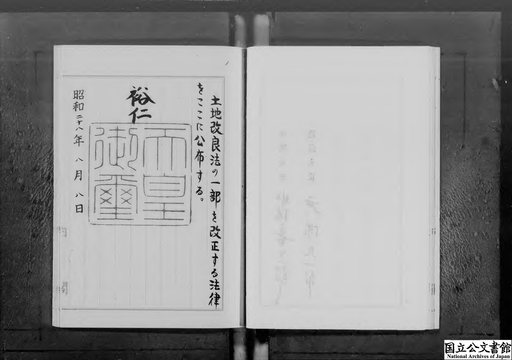 土地改良法の一部を改正する法律
をここに公布する。
裕仁
天皇
御璽
昭和二十八年八月八日
国立公文書館
National Archives of Japan